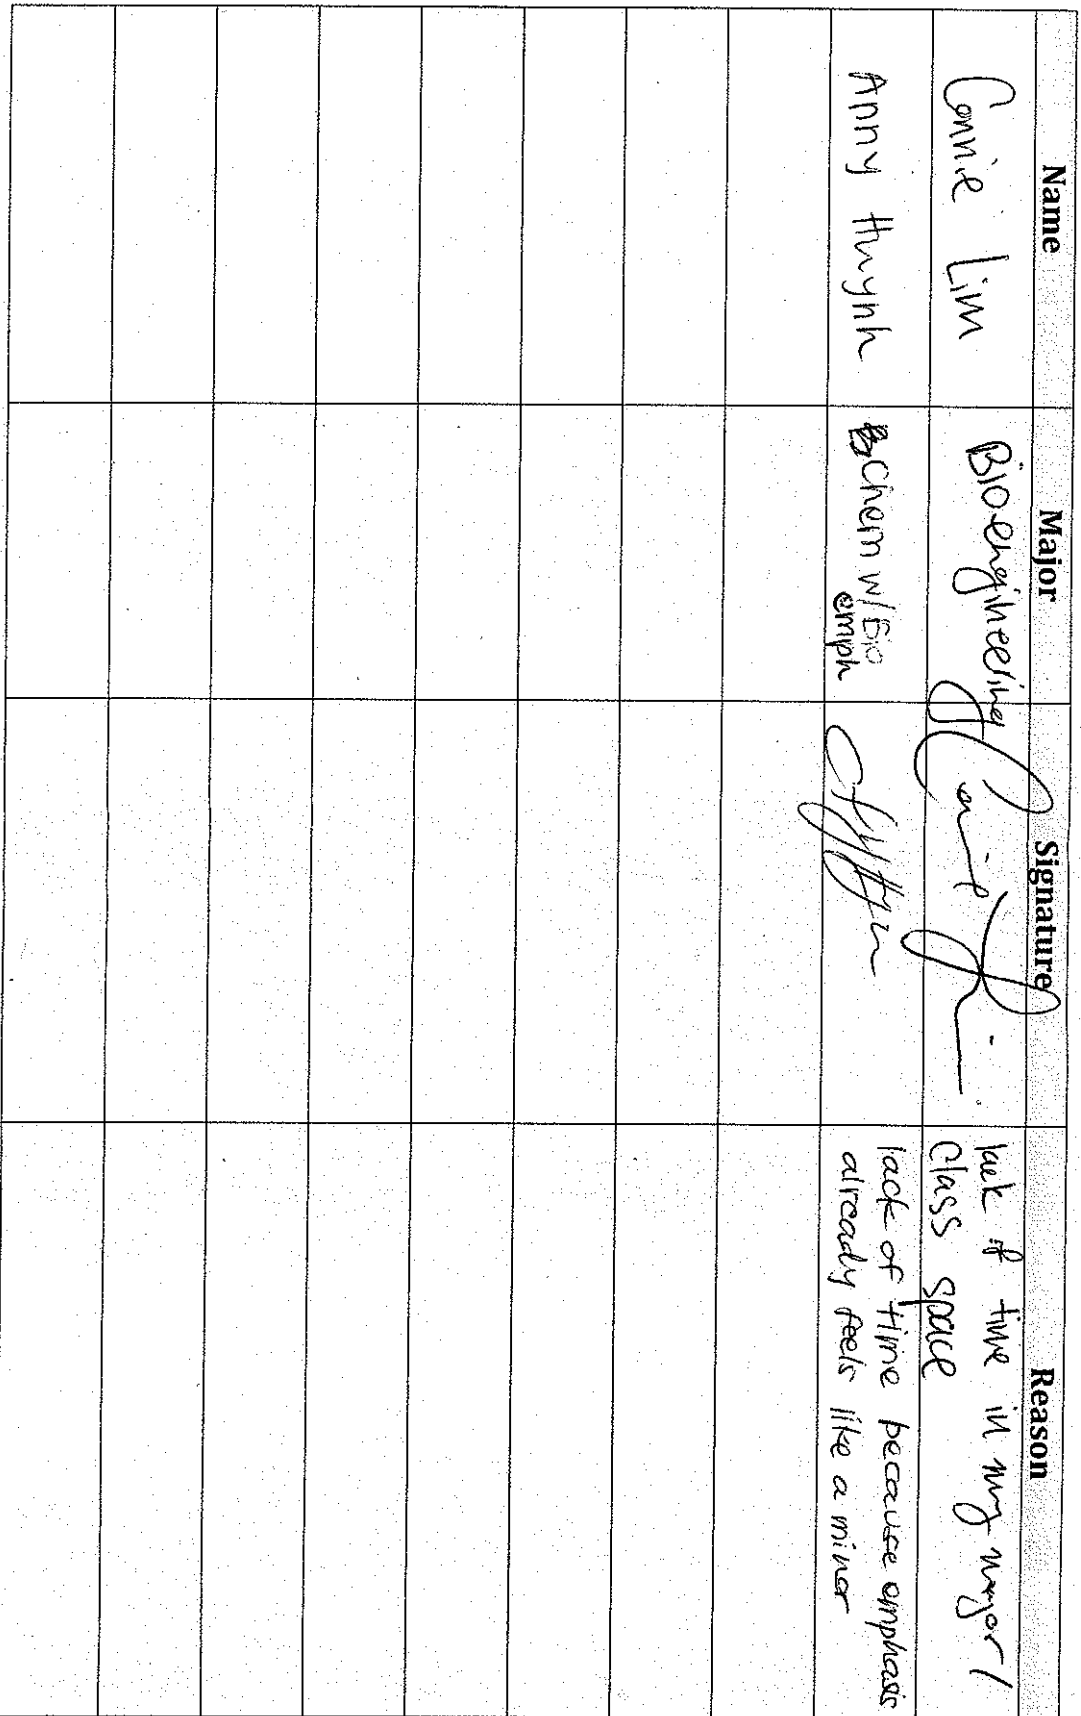 Name Major Signature Reason
Connie Lim Bioengineering lack of time in my major /
class space
Anny Huynh Chem w/ Bio
emph
lack of time because emphasis
already feels like a minor